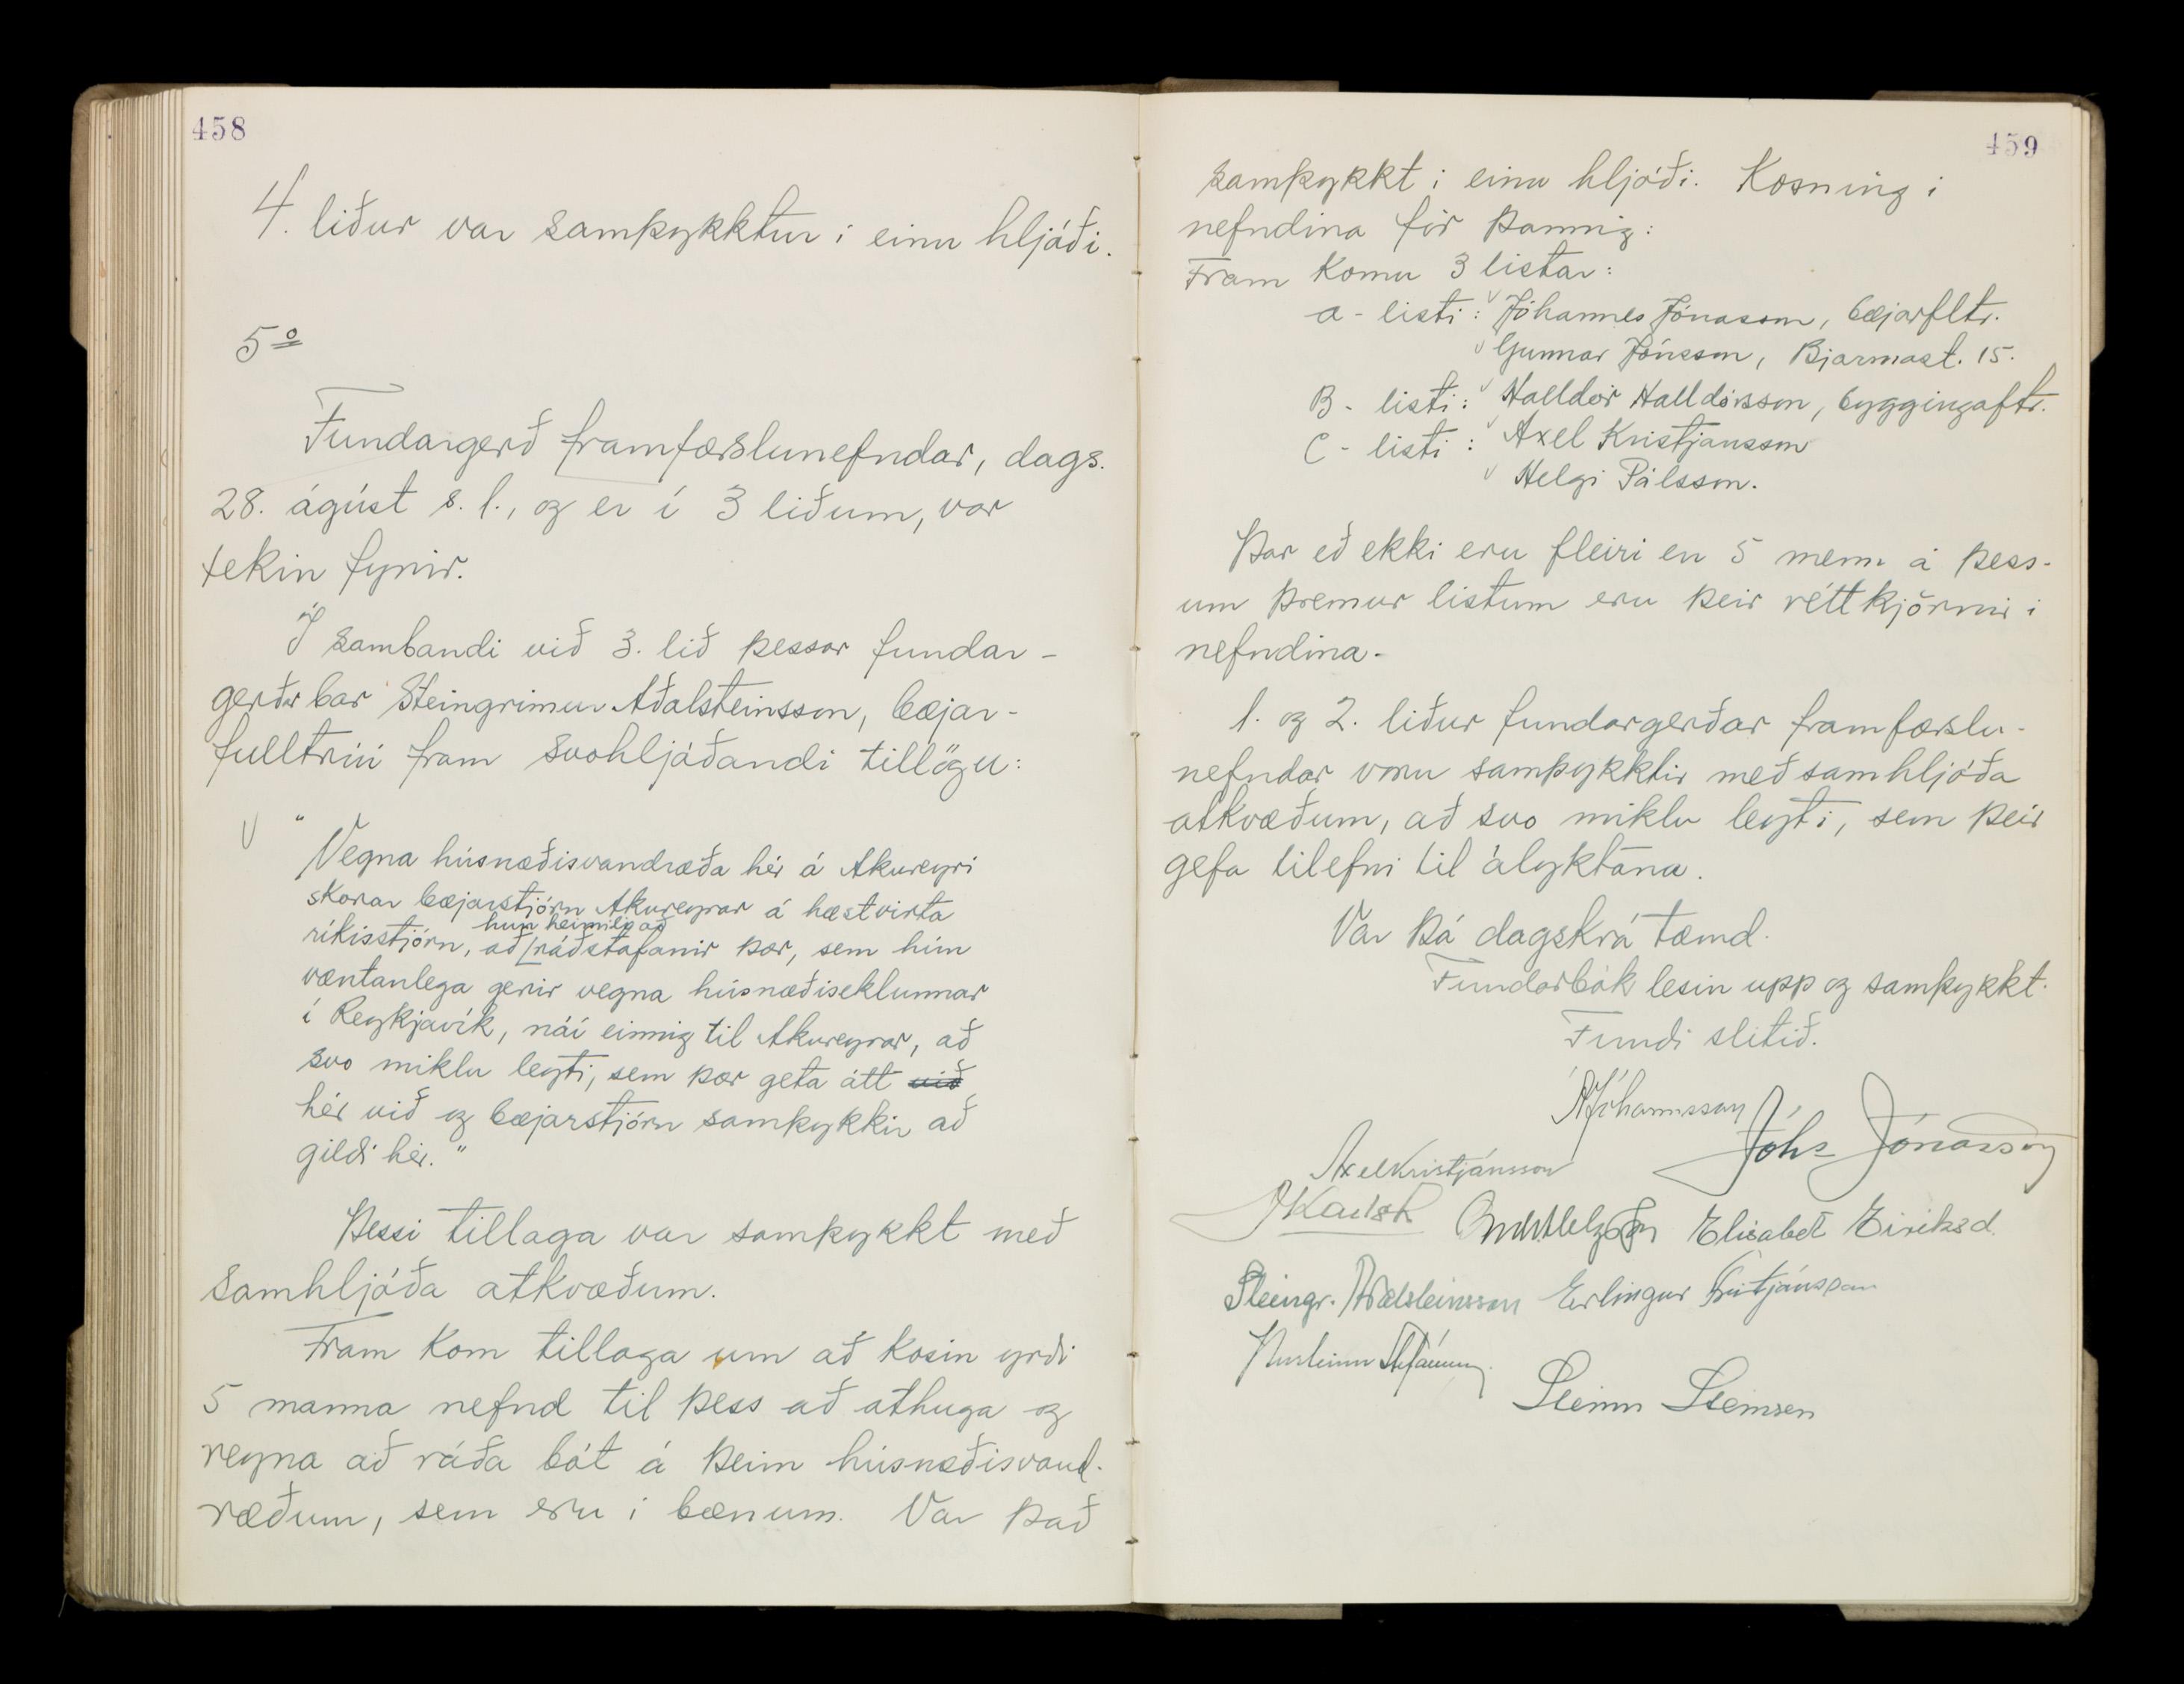 458
4. liður var samþykktur í einu hljóði.
5º
Fundargerð framfærslunefndar, dags.
28. ágúst s. l., og er í 3 liðum, var
tekin fyrir.
Í sambandi við 3. lið þessar fundar-
gerðar bar Steingrímur Aðalsteinsson, bæjar-
fulltrúi fram svohljóðandi tillögu:
"Vegna húsnæðisvandræða hér á Akureyri
skorar bæjarstjórn Akureyrar á hæstvirta
hún heimili að
ríkisstjórn, að ráðstafanir þær, sem hún
væntanlega gerir vegna húsnæðiseklunnar
í Reykjavík, nái einnig til Akureyrar, að
svo miklu leyti, sem þær geta átt við
hér við og bæjarstjórn samþykkir að
gildi hér."
Þessi tillaga var samþykkt með
samhljóða atkvæðum.
Fram kom tillaga um að kosin yrði
5 manna nefnd til þess að athuga og
reyna að ráða bót á þeim húsnæðisvand-
ræðum, sem eru í bænum. Var það
459
samþykkt í einu hljóði. Kosning í
nefndina fór þannig:
Fram komu 3 listar:
A - listi: Jóhannes Jónasson, bæjarfltr.
Gunnar Jónsson, Bjarmast. 15.
B - listi: Halldór Halldórsson, byggingaftr.
C - listi: Axel Kristjánsson
Helgi Pálsson.
Þar eð ekki eru fleiri en 5 menn á þess-
um þremur listum eru þeir réttkjörnir í
nefndina.
1. og 2. liður fundargerðar framfærslu-
nefndar voru samþykktir með samhljóða
atkvæðum, að svo miklu leyti, sem þeir
gefa tilefni til ályktana.
Var þá dagskrá tæmd.
Fundarbók lesin upp og samþykkt.
Fundi slitið.
Jóhannsson
Johs Jónasson
Axel Kristjánsson
Elísabet Eiríksd.
Steingr. Aðalsteinsson Erlingur Friðjónsson
Þorsteinn Stefánsson
Steinn Steinsen